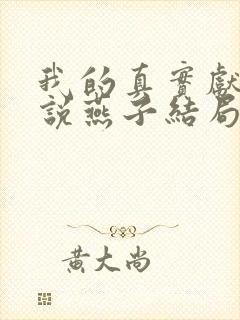 我的真實獻
說燕子結局
黃大尚